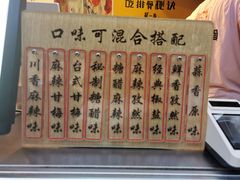 口味可混合搭配
川香麻辣味
麻辣甘梅味
台式甘梅味
秘制糖醋味
糖醋麻辣味
麻辣孜然味
经典椒盐味
鲜香孜然味
蒜香原味